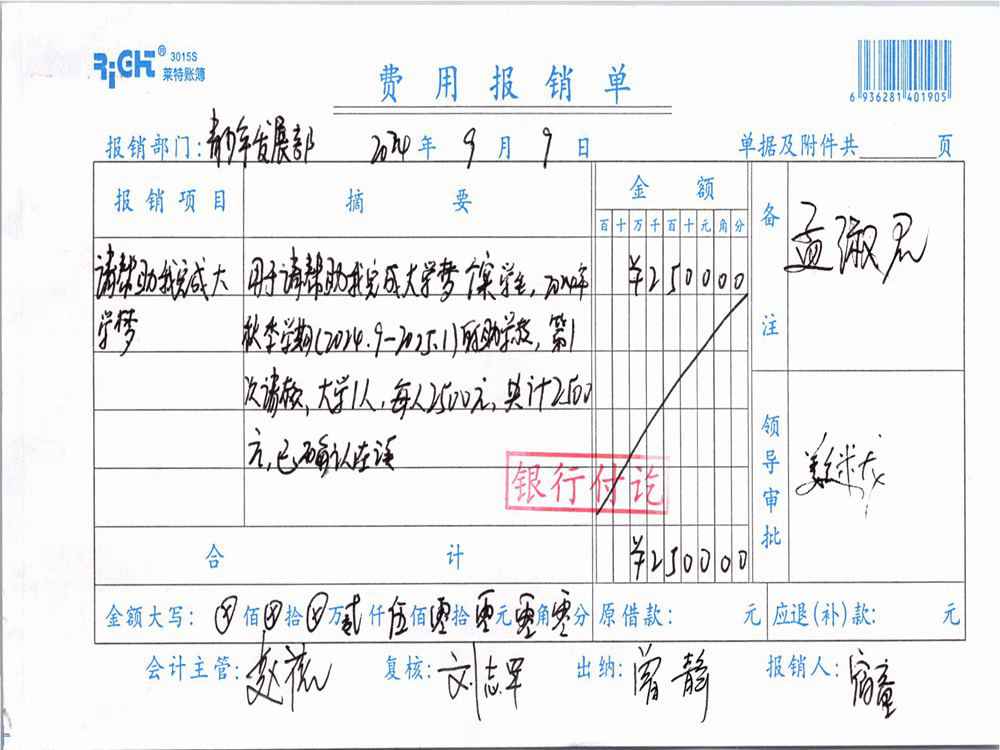 RiGHT® 3015S
莱特账簿
费用报销单
6 936281 401905
报销部门:青少年发展部 2024年9月9日 单据及附件共 页
报销项目 摘要 金额 备注 孟淑君
百十万千百十元角分
请帮助我完成大 用于请帮助我完成大学梦个案学生,2024年 ¥250000
学梦 秋季学期(2024.9-2025.1)所助学校,第1
次请款,大学1人,每人2500元,共计2500
元,已确认在读
领导审批
银行付讫
合计 ¥250000
金额大写:ⓧ佰ⓧ拾ⓧ万贰仟伍佰零拾零元零角零分 原借款: 元 应退(补)款: 元
会计主管: 复核:刘志军 出纳:曾静 报销人:宿童